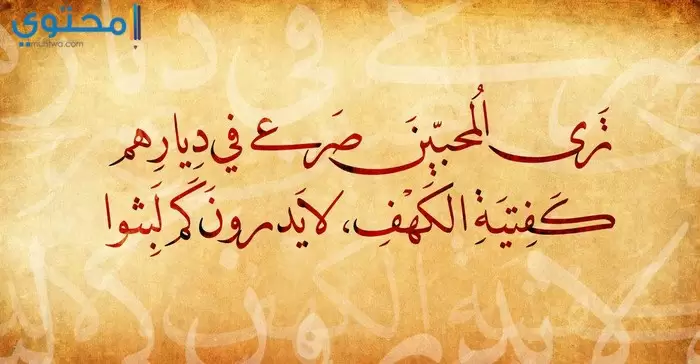 محتوي
muhtwa.com
تَرى المُحبّينَ صَرعى في دِيارِهم
كَفِتيَةِ الكَهْفِ، لا يَدرونَ كَم لَبِثوا